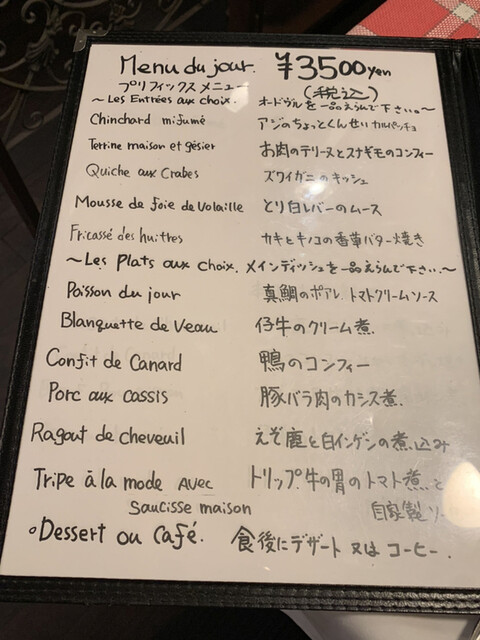 Menu du jour. ¥3500yen
プリフィックスメニュー (税込)
～Les Entrées aux choix. オードヴルを一品えらんで下さい。～
Chinchard mifumé アジのちょっとくんせい カルパッチョ
Terrine maison et gésier お肉のテリーヌとスナギモのコンフィー
Quiche aux Crabes ズワイガニのキッシュ
Mousse de foie de Volaille とり白レバーのムース
Fricassé des huitres カキとキノコの香草バター焼き
～Les Plats aux choix. メインディッシュを一品えらんで下さい.～
Poisson du jour 真鯛のポアレ. トマトクリームソース
Blanquette de Veau 仔牛のクリーム煮.
Confit de Canard 鴨のコンフィー
Porc aux cassis 豚バラ肉のカシス煮.
Ragout de cheveuil えぞ鹿と白インゲンの煮込み
Tripe à la mode avec トリップ.牛の胃のトマト煮.と
saucisse maison 自家製ソー
。Dessert ou Café. 食後にデザート 又は コーヒー.